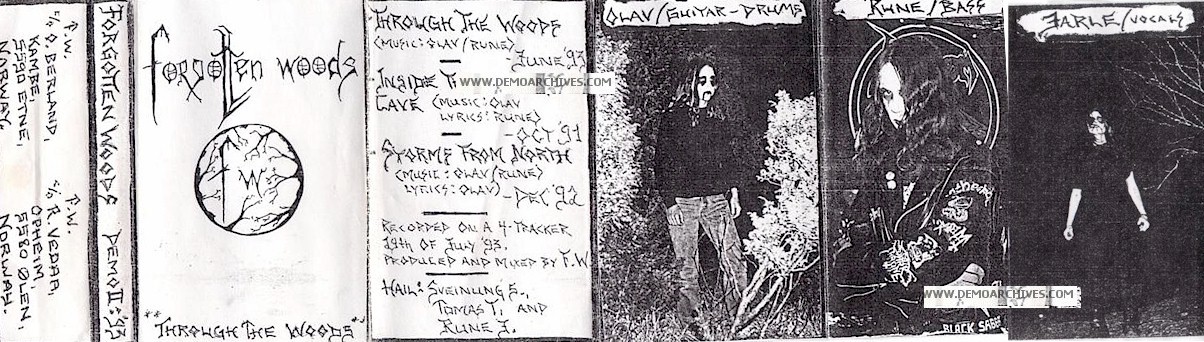 F.W.
c/o O. BERLAND,
KAMBE,
5590 ETNE,
NORWAY.
F.W.
c/o R. VEDAA,
OPHEIM,
5580 ØLEN,
NORWAY.
FORGOTTEN WOODS DEMO II: '93
FORGOTTEN WOODS
FW
"THROUGH THE WOODS"
THROUGH THE WOODS
(MUSIC: OLAV/RUNE)
-JUNE '93
INSIDE
CAVE (MUSIC: OLAV
LYRICS: RUNE)
-OCT '91
STORMS FROM NORTH
(MUSIC: OLAV/RUNE
LYRICS: OLAV)
-DEC '92
RECORDED ON A 4-TRACKER
19TH OF JULY '93.
PRODUCED AND MIXED BY F.W
HAIL: SVEINUNG S.,
TOMAS T. AND
RUNE J.
WWW.DEMOARCHIVES.COM
OLAV/GUITAR-DRUMS
RUNE/BASS
BLACK SABB
WWW.DEMOARCHIVES.COM
JARLE/VOCALS